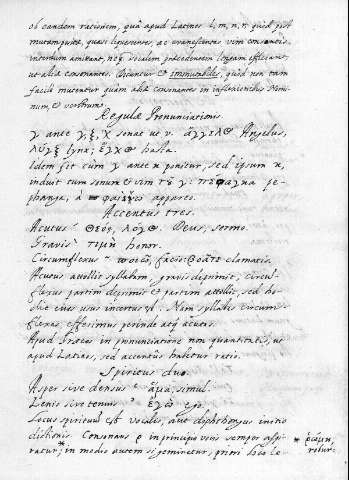 ob eandem rationem, quâ apud Latinos l, m, n, r quòd post
mutam positæ, quasi liquescere, ac evanescentes vim consonantis
incertum amittant, neq. vocalem præcedentem longam efficiant
ut aliæ consonantes. Dicuntur et immutabiles, quòd non tam
facile mutentur quàm aliæ consonantes in inflexionibus Nomi-
num, et verborum.
Regulæ Pronunciationis
γ ante γ, ξ, χ sonat ut ν. ἄγγελος Angelus,
λύγξ lynx, ἔγχος hasta.
Idem fit cùm γ ante κ ponitur, sed ipsum κ,
induit tum sonum et vim τοῦ γ:
phanja, à φαίνω appareo.
Accentus tres.
Acutus ´ θεός, λόγος. Deus, sermo.
Gravis ` τιμὴ honor.
Circumflexus ~ ποιῶ, facio: βοᾶτε clamatis.
Acutus attollit syllabam, gravis deprimit, circū-
flexus partim deprimit et partim attollit, sed ho-
die eius usus incertus est. Nam syllabas circum-
flexas efferimus perinde atq. acutas.
Apud Græcos in pronunciatione non quantitatis, ut
apud Latinos, sed accentus habetur ratio.
Spiritus duo.
Asper sive densus ῾ ἅμα, simul.
Lenis sive tenuis ᾿ ἐγώ ego.
Locus spirituū est vocalis, aut diphthongus initio
dictionis. Consonans ρ in principio vocis semper aspi-
ratur,* in medio autem si geminetur, priori
* ῥώμη,
robur.